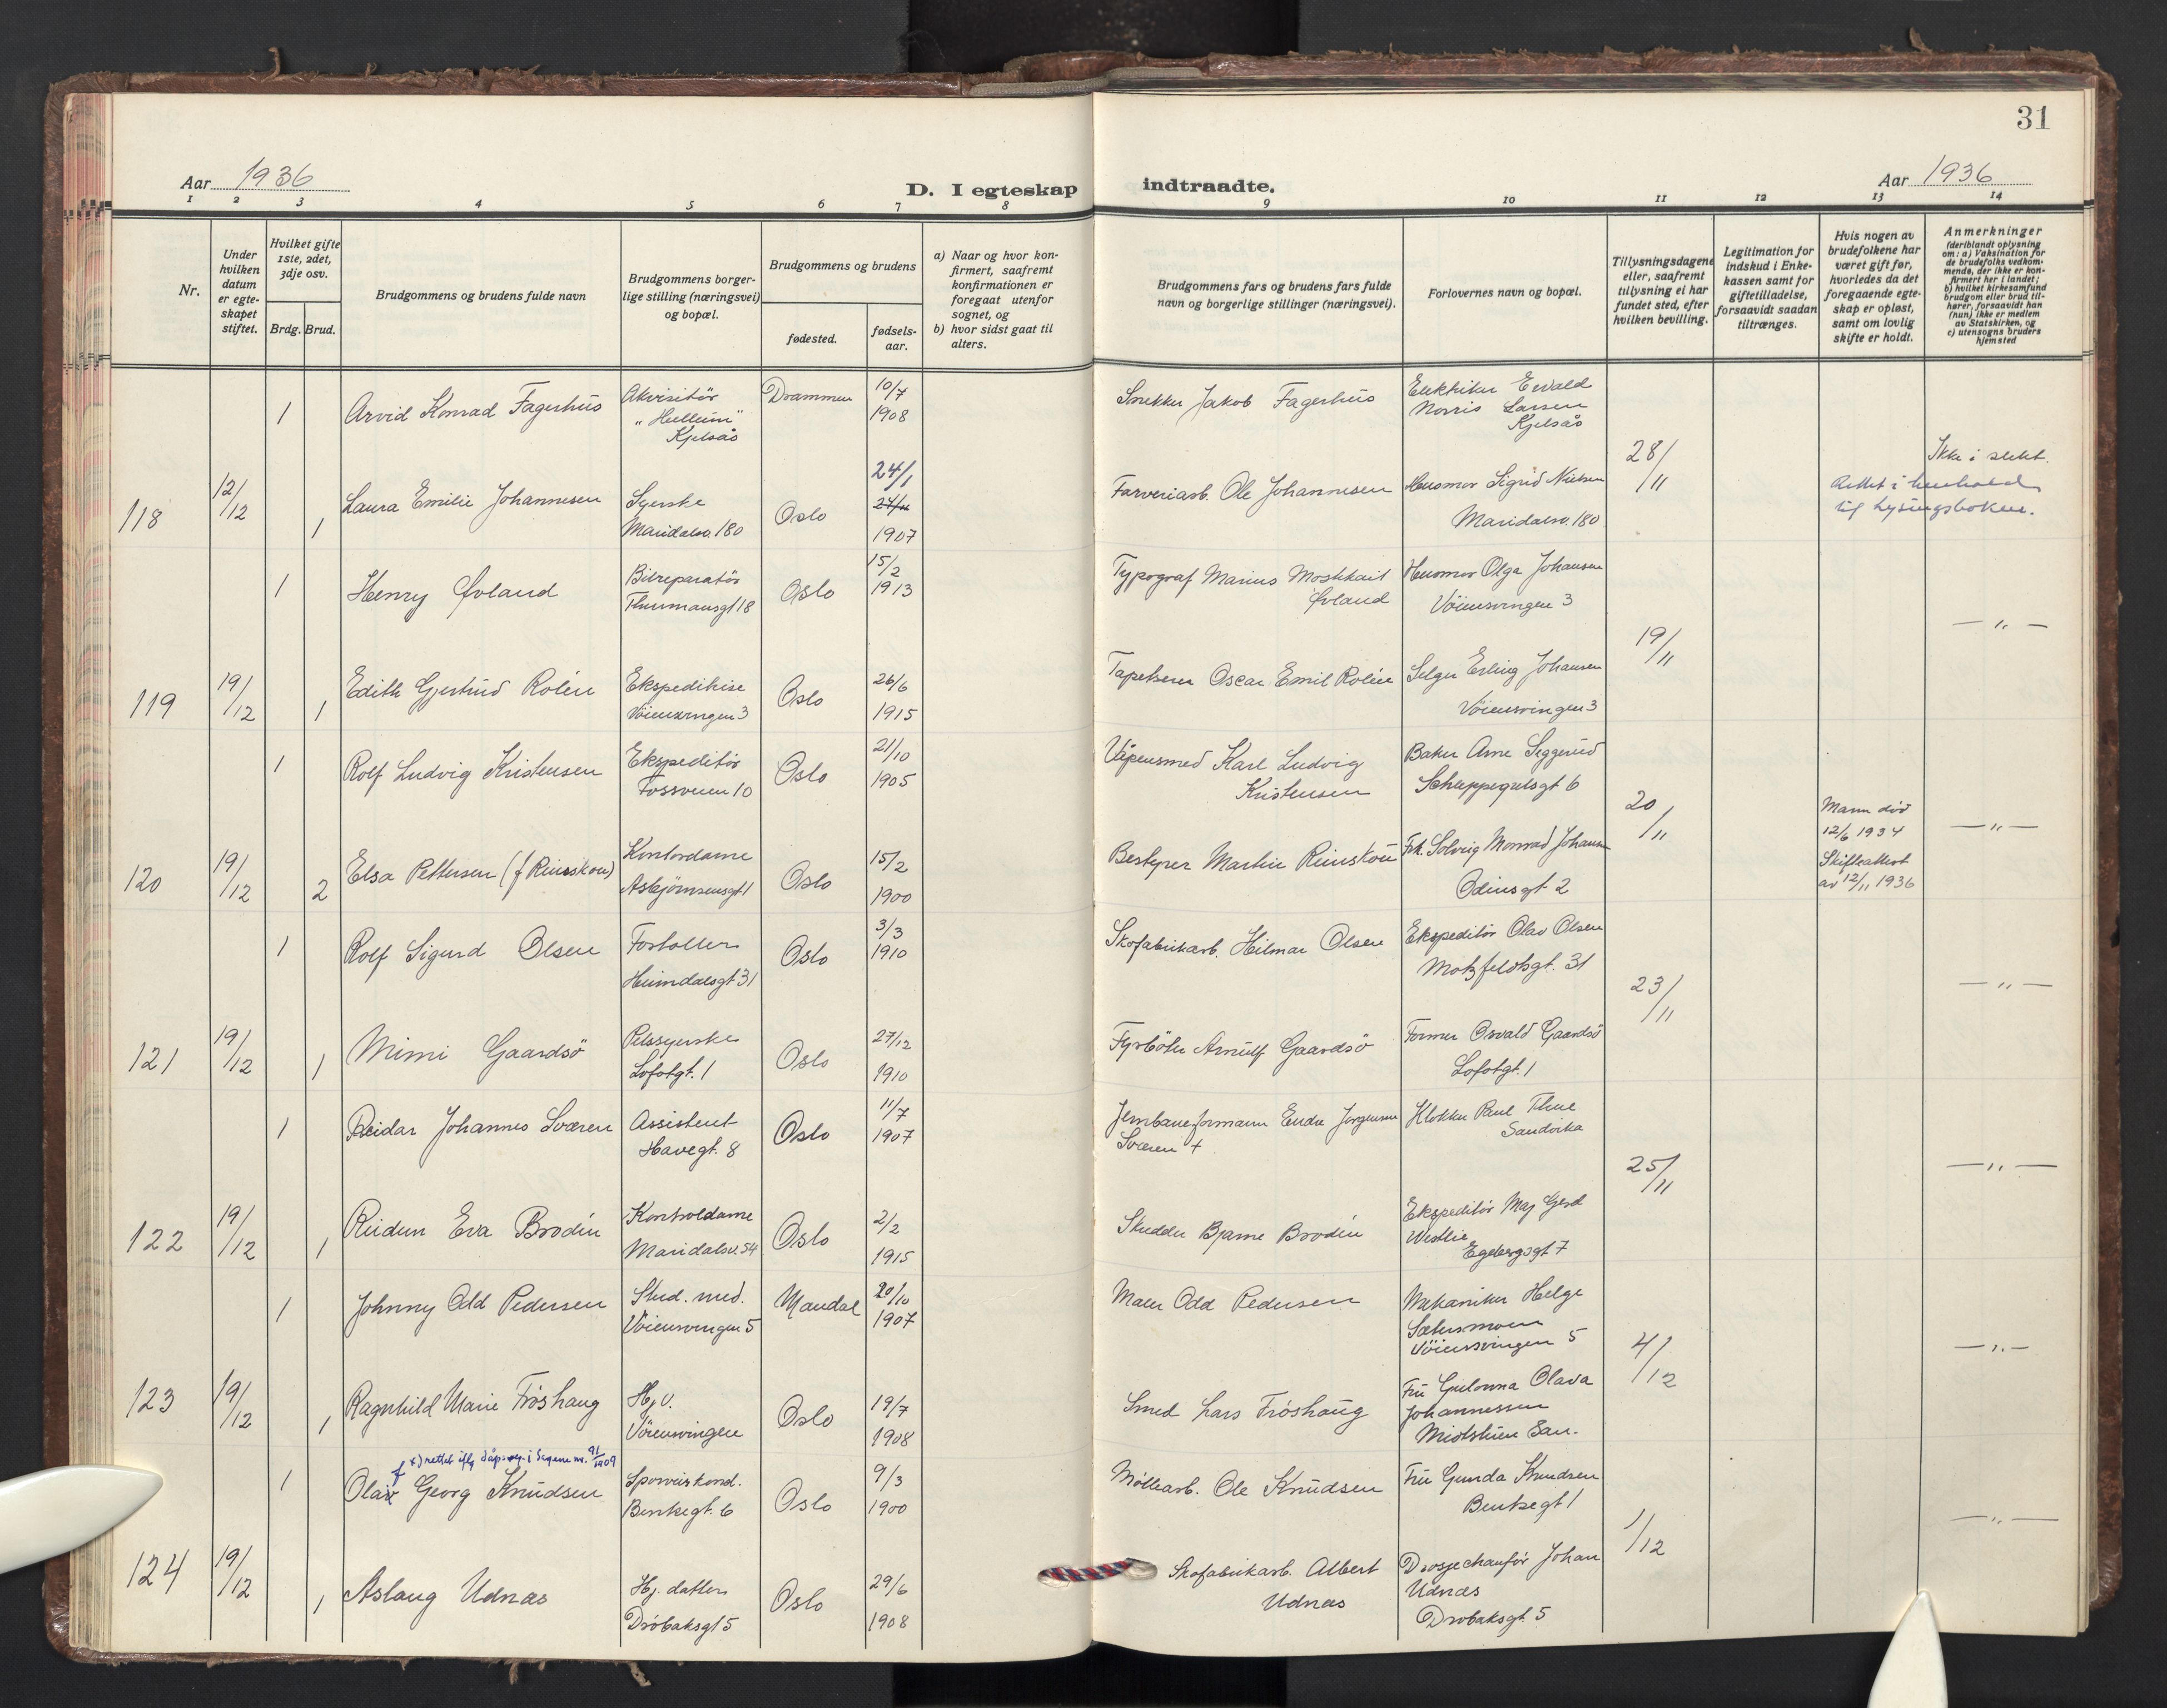 31
Aar 1936
D. I egteskap indtraadte.
Aar 1936
1 2 3 4 5 6 7 8 9 10 11 12 13 14
Nr.
Under hvilken datum er egteskapet stiftet.
Hvilket gifte 1ste, 2det, 3dje osv.
Brdg. Brud.
Brudgommens og brudens fulde navn
Brudgommens borgerlige stilling (næringsvei) og bopæl.
Brudgommens og brudens
fødested.
fødselsaar.
a) Naar og hvor konfirmert, saafremt konfirmationen er foregaat utenfor sognet, og
b) hvor sidst gaat til alters.
Brudgommens fars og brudens fars fulde navn og borgerlige stillinger (næringsvei).
Forlovernes navn og bopæl.
Tillysningsdagene eller, saafremt tillysning ei har fundet sted, efter hvilken bevilling.
Legitimation for indskud i Enkekassen samt for giftetilladelse, forsaavidt saadan tiltrænges.
Hvis nogen av brudefolkene har været gift før, hvorledes da det foregaaende egteskap er opløst, samt om lovlig skifte er holdt.
Anmerkninger (deriblandt oplysning om: a) Vaksination for de brudefolks vedkommende, der ikke er konfirmert her i landet; b) hvilket kirkesamfund brudgom eller brud tilhører, forsaavidt han (hun) ikke er medlem av Statskirken, og c) utensogns bruders hjemsted
1 Arvid Konrad Fagerhus Akvisitör "Hellum" Kjelsås Drammen 10/7 1908 Snekker Jakob Fagerhus Elektriker Ewald Norris Larsen Kjelsås
28/11
Ikke i slekt.
118 12/12 1 Laura Emilie Johannesen Syerske Maridalsv. 180 Oslo 24/1 24/11 1907 Farveriarb. Ole Johannesen Husmor Sigrid Nielsen Maridalsv. 180
Rettet i henhold til lysingsboken.
1 Henry Øvland Bilreparatör Thurmansgt 18 Oslo 15/2 1913 Typograf Marius Øvland Husmor Olga Johansen Vöiensvingen 3
19/11 — " —
119 19/12 1 Edith Gjertrud Rolén Ekspeditrise Vöiensvingen 3 Oslo 26/6 1915 Tapetserer Oscar Emil Rolén Selger Erling Johansen Vöiensvingen 3
1 Rolf Ludvig Kristensen Ekspeditör Fossveien 10 Oslo 21/10 1905 Våpensmed Karl Ludvig Kristensen Baker Arne Seggerud Schleppegrelsgt 6
20/11 Mann död 12/6 1934 Skifteattest av 12/11 1936 — " —
120 19/12 2 Elsa Pettersen (f Reinskou) Kontordame Asbjörnsensgt 1 Oslo 15/2 1900 Bestyrer Martin Reinskou Frk. Solveig Monrad Johansen Odinsgt 2
1 Rolf Sigurd Olsen Forhollen Heimdalsgt 31 Oslo 3/3 1910 Skofabrikarb. Hilmar Olsen Ekspeditör Olav Olsen Motzfeldtsgt. 31
23/11 — " —
121 19/12 1 Mimi Gaardsö Pelssyerske Lofotgt. 1 Oslo 27/12 1910 Fyrböter Arnulf Gaardsö Former Osvald Gaardsö Lofotgt. 1
1 Reidar Johannes Sværen Assistent Havegt. 8 Oslo 11/7 1907 Jernbaneformann Endre Jørgensen Sværen + Klokker Paul Thue Sandvika
25/11 — " —
122 19/12 1 Reidun Eva Brodin Kontordame Maridalsv. 54 Oslo 2/2 1915 Skredder Bjarne Brodin Ekspeditör Maj Gerd Westlie Egebergsgt 7
1 Johnny Odd Pedersen Stud. med. Vöiensvingen 5 Mandal 20/10 1907 Maler Odd Pedersen Mekaniker Helge Sætersmoen Vöiensvingen 5
4/12 — " —
123 19/12 1 Ragnhild Marie Fröshaug Hj. v. Vöiensvingen Oslo 19/7 1908 Smed Lars Fröshaug Fru Gulonna Olava Johannessen Midtstuen San.
x) rettet iflg dåpsreg. i Sagene nr. 91/1909
1 Olaf Georg Knudsen Sporveiskond. Bentsegt. 6 Oslo 9/3 1900 Möllearb. Ole Knudsen Fru Gunda Knudsen Bentsegt 1
1/12 — " —
124 19/12 1 Aslaug Udnæs Hj. datter Dröbaksgt 5 Oslo 29/6 1908 Skofabrikarb. Albert Udnæs Drosjechauför Johan Udnæs Dröbaksgt. 5